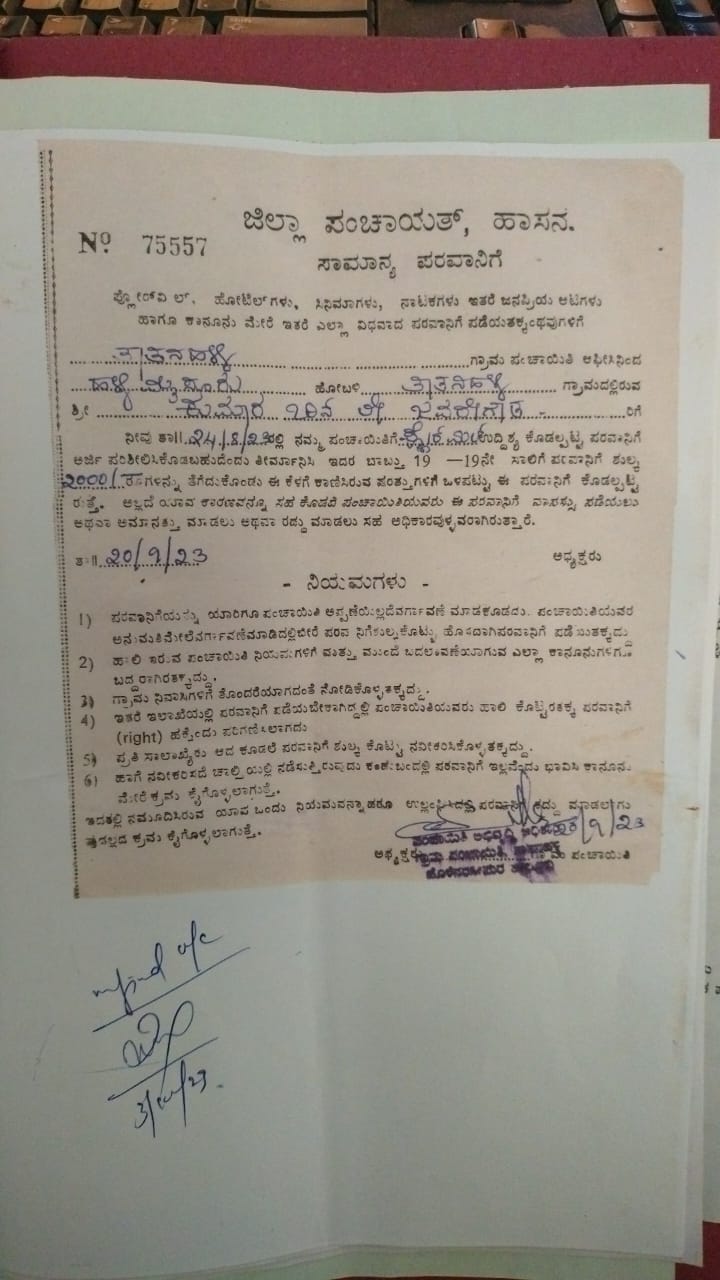 ಜಿಲ್ಲಾ ಪಂಚಾಯತ್, ಹಾಸನ.
Nº 75557
ಸಾಮಾನ್ಯ ಪರವಾನಿಗೆ
ಪ್ಲೋರ್‌ಮಿಲ್, ಹೋಟೆಲ್‌ಗಳು, ಸಿನಿಮಾಗಳು, ನಾಟಕಗಳು ಇತರೆ ಜನಪ್ರಿಯ ಆಟಗಳು
ಹಾಗೂ ಕಾನೂನು ಮೇರೆ ಇತರೆ ಎಲ್ಲಾ ವಿಧವಾದ ಪರವಾನಿಗೆ ಪಡೆಯತಕ್ಕಂಥವುಗಳಿಗೆ
ತಾತನಹಳ್ಳಿ ಗ್ರಾಮ ಪಂಚಾಯಿತಿ ಆಫೀಸಿನಿಂದ
ಹಳ್ಳಿ ಮೈಸೂರು ಹೋಬಳಿ ತಾತನಹಳ್ಳಿ ಗ್ರಾಮದಲ್ಲಿರುವ
ಶ್ರೀ ಕುಮಾರ ಬಿನ್ ಜವರೇಗೌಡ ರಿಗೆ
ನೀವು ತಾ॥ 24/8/23 ರಲ್ಲಿ ನಮ್ಮ ಪಂಚಾಯಿತಿಗೆ ಉದ್ದಿಶ್ಯ ಕೊಡಲ್ಪಟ್ಟ ಪರವಾನಿಗೆ
ಅರ್ಜಿ ಪರಿಶೀಲಿಸಿಕೊಡಬಹುದೆಂದು ತೀರ್ಮಾನಿಸಿ ಇದರ ಬಾಬ್ತು 19 —19ನೇ ಸಾಲಿಗೆ ಪರವಾನಿಗೆ ಶುಲ್ಕ
2000/ ರೂಗಳನ್ನು ತೆಗೆದುಕೊಂಡು ಈ ಕೆಳಗೆ ಕಾಣಿಸಿರುವ ಷರತ್ತುಗಳಿಗೆ ಒಳಪಟ್ಟು ಈ ಪರವಾನಿಗೆ ಕೊಡಲ್ಪಟ್ಟಿ
ರುತ್ತೆ. ಅಲ್ಲದೆ ಯಾವ ಕಾರಣವನ್ನೂ ಸಹ ಕೊಡದೆ ಪಂಚಾಯಿತಿಯವರು ಈ ಪರವಾನಿಗೆ ವಾಪಸ್ಸು ಪಡೆಯಲು
ಅಥವಾ ಅಮಾನತ್ತು ಮಾಡಲು ಅಥವಾ ರದ್ದು ಮಾಡಲು ಸಹ ಅಧಿಕಾರವುಳ್ಳವರಾಗಿರುತ್ತಾರೆ.
ತಾ॥ 20/9/23 ಅಧ್ಯಕ್ಷರು
- ನಿಯಮಗಳು -
1) ಪರವಾನಿಗೆಯನ್ನು ಯಾರಿಗೂ ಪಂಚಾಯಿತಿ ಅಪ್ಪಣೆಯಿಲ್ಲದೆ ವರ್ಗಾವಣೆ ಮಾಡಕೂಡದು. ಪಂಚಾಯಿತಿಯವರ
ಅನುಮತಿಮೇಲೆ ವರ್ಗಾವಣೆಮಾಡಿದಲ್ಲಿ ಬೇರೆ ಪರವಾನಿಗೆ ಶುಲ್ಕಕೊಟ್ಟು ಹೊಸದಾಗಿ ಪರವಾನಿಗೆ ಪಡೆಯತಕ್ಕದ್ದು
2) ಹಾಲಿ ಇರುವ ಪಂಚಾಯಿತಿ ನಿಯಮಗಳಿಗೆ ಮತ್ತು ಮುಂದೆ ಬದಲಾವಣೆಯಾಗುವ ಎಲ್ಲಾ ಕಾನೂನುಗಳಿಗೂ
ಬದ್ದರಾಗಿರತಕ್ಕದ್ದು.
3) ಗ್ರಾಮ ನಿವಾಸಿಗಳಿಗೆ ತೊಂದರೆಯಾಗದಂತೆ ನೋಡಿಕೊಳ್ಳತಕ್ಕದ್ದು.
4) ಇತರೆ ಇಲಾಖೆಯಲ್ಲಿ ಪರವಾನಿಗೆ ಪಡೆಯಬೇಕಾಗಿದ್ದಲ್ಲಿ ಪಂಚಾಯಿತಿಯವರು ಹಾಲಿ ಕೊಟ್ಟಿರತಕ್ಕ ಪರವಾನಿಗೆ
(right) ಹಕ್ಕೆಂದು ಪರಿಗಣಿಸಲಾಗದು
5) ಪ್ರತಿ ಸಾಲಾಖೈರು ಆದ ಕೂಡಲೆ ಪರವಾನಿಗೆ ಶುಲ್ಕ ಕೊಟ್ಟು ನವೀಕರಿಸಿಕೊಳ್ಳತಕ್ಕದ್ದು.
6) ಹಾಗೆ ನವೀಕರಿಸದೆ ಚಾಲ್ತಿಯಲ್ಲಿ ನಡೆಸುತ್ತಿರುವುದು ಕಂಡುಬಂದಲ್ಲಿ ಪರವಾನಿಗೆ ಇಲ್ಲವೆಂದು ಭಾವಿಸಿ ಕಾನೂನು
ಮೇರೆ ಕ್ರಮ ಕೈಗೊಳ್ಳಲಾಗುತ್ತೆ.
ಇದರಲ್ಲಿ ನಮೂದಿಸಿರುವ ಯಾವ ಒಂದು ನಿಯಮವನ್ನಾದರೂ ಉಲ್ಲಂಘಿಸಿದಲ್ಲಿ ಪರವಾನಿಗೆ ರದ್ದು ಮಾಡಲಾಗು
ವುದಲ್ಲದೆ ಕ್ರಮ ಕೈಗೊಳ್ಳಲಾಗುತ್ತೆ.
20/9/23
ಪಂಚಾಯಿತಿ ಅಭಿವೃದ್ಧಿ ಅಧಿಕಾರಿ
ಅಧ್ಯಕ್ಷರು ಗ್ರಾಮ ಪಂಚಾಯಿತಿ
ಗ್ರಾಮ ಪಂಚಾಯಿತಿ, ತಾತನಹಳ್ಳಿ
ಹೊಳೆನರಸೀಪುರ ತಾಲ್ಲೂಕು